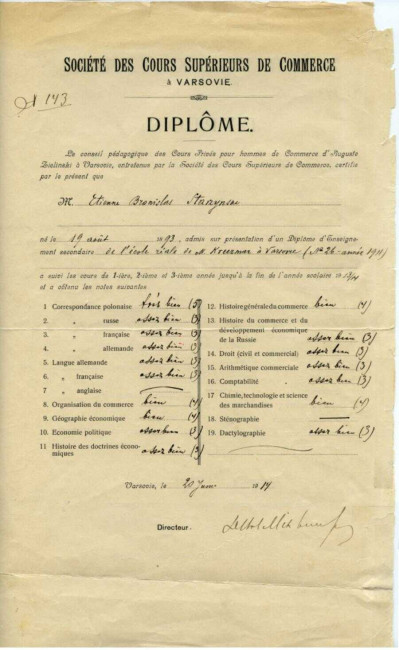 SOCIÉTÉ DES COURS SUPÉRIEURS DE COMMERCE
à VARSOVIE.
№ 143
DIPLÔME.
Le conseil pédagogique des Cours Privés pour hommes de Commerce d'Auguste
Zielinski à Varsovie, entretenus par la Société des Cours Supérieurs de Commerce, certifie
par le présent que
M. Etienne Bronislas
né le 19 août 1893, admis sur présentation d'un Diplôme d'Enseigne-
ment secondaire de l'école réale de M à Varsovie (№ 26 - année 1911)
a suivi les cours de 1-ière, 2-ième et 3-ième année jusqu'à la fin de l'année scolaire 1913/14
et a obtenu les notes suivantes
1 Correspondance polonaise très bien (5)
2. „ russe assez bien (3)
3 „ française assez bien (3)
4 „ allemande assez bien (3)
5. Langue allemande assez bien (3)
6 „ française assez bien (3)
7 „ anglaise —
8. Organisation du commerce bien (4)
9. Géographie économique bien (4)
10. Economie politique assez bien (3)
11 Histoire des doctrines écono-
miques assez bien (3)
12. Histoire générale du commerce bien (4)
13. Histoire du commerce et du
développement économique
de la Russie assez bien (3)
14. Droit (civil et commercial) assez bien (3)
15. Arithmétique commerciale assez bien (3)
16. Comptabilité assez bien (3)
17. Chimie, technologie et science
des marchandises bien (4)
18. Sténographie —
19. Dactylographie assez bien (3)
Varsovie, le 20 Juin 1914
Directeur: